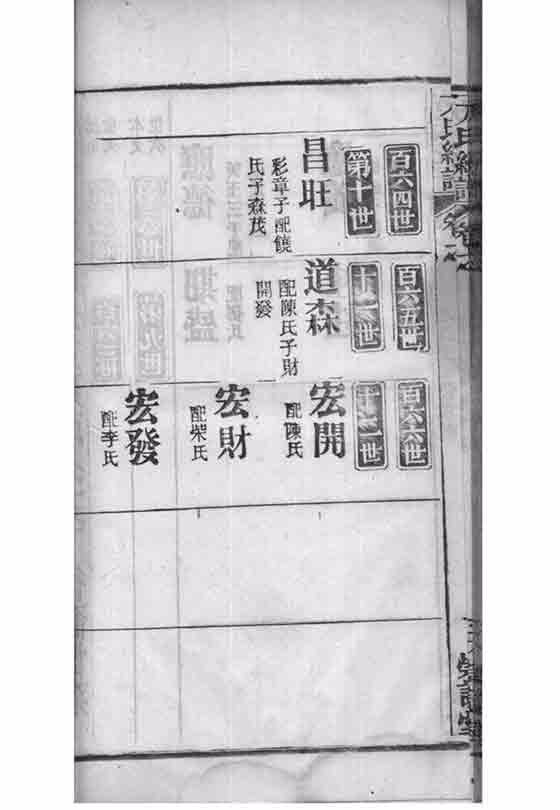 百六四世
第十世
昌旺
彩章子配饒
氏子森茂
百六五世
十一世
道森
配陳氏子財
開發
百六六世
十二世
宏開
配陳氏
宏財
配柴氏
宏發
配李氏